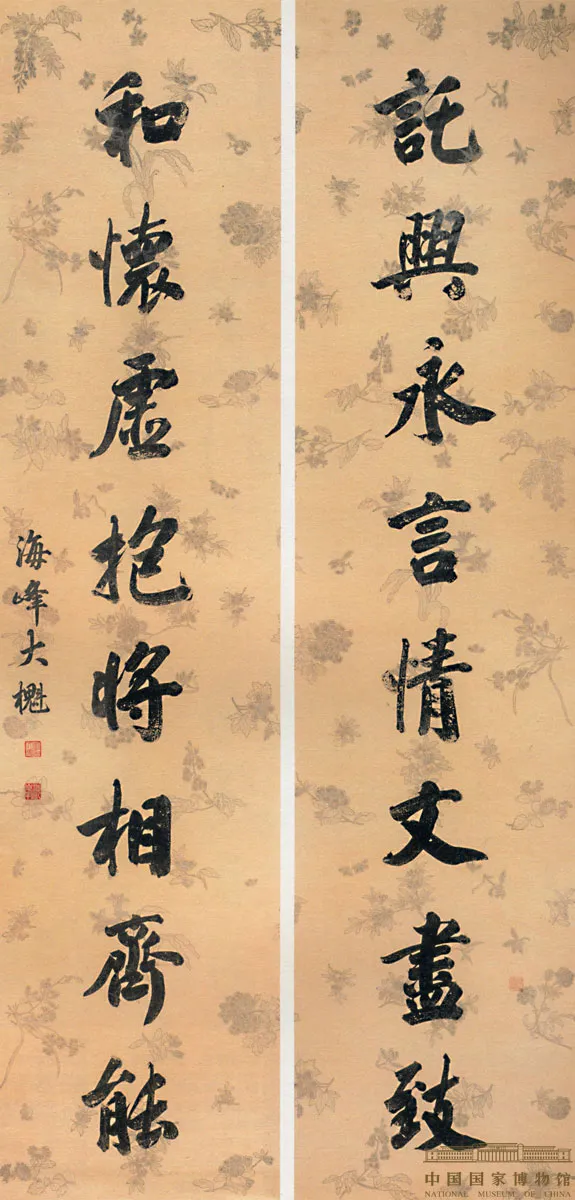 託興永言情文盡致
和懷虛抱將相齊能
海峰大櫆
中国国家博物馆
NATIONAL MUSEUM OF CHINA